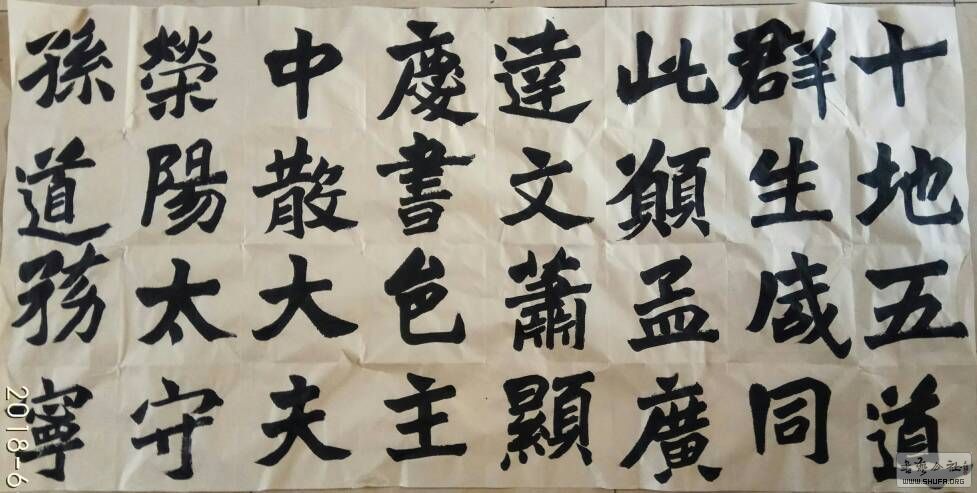 十地五道
群生咸同
此願孟廣
達文蕭顯
慶書邑主
中散大夫
榮陽太守
孫道務寧
2018-6
书艺公社
WWW.SHUFA.ORG